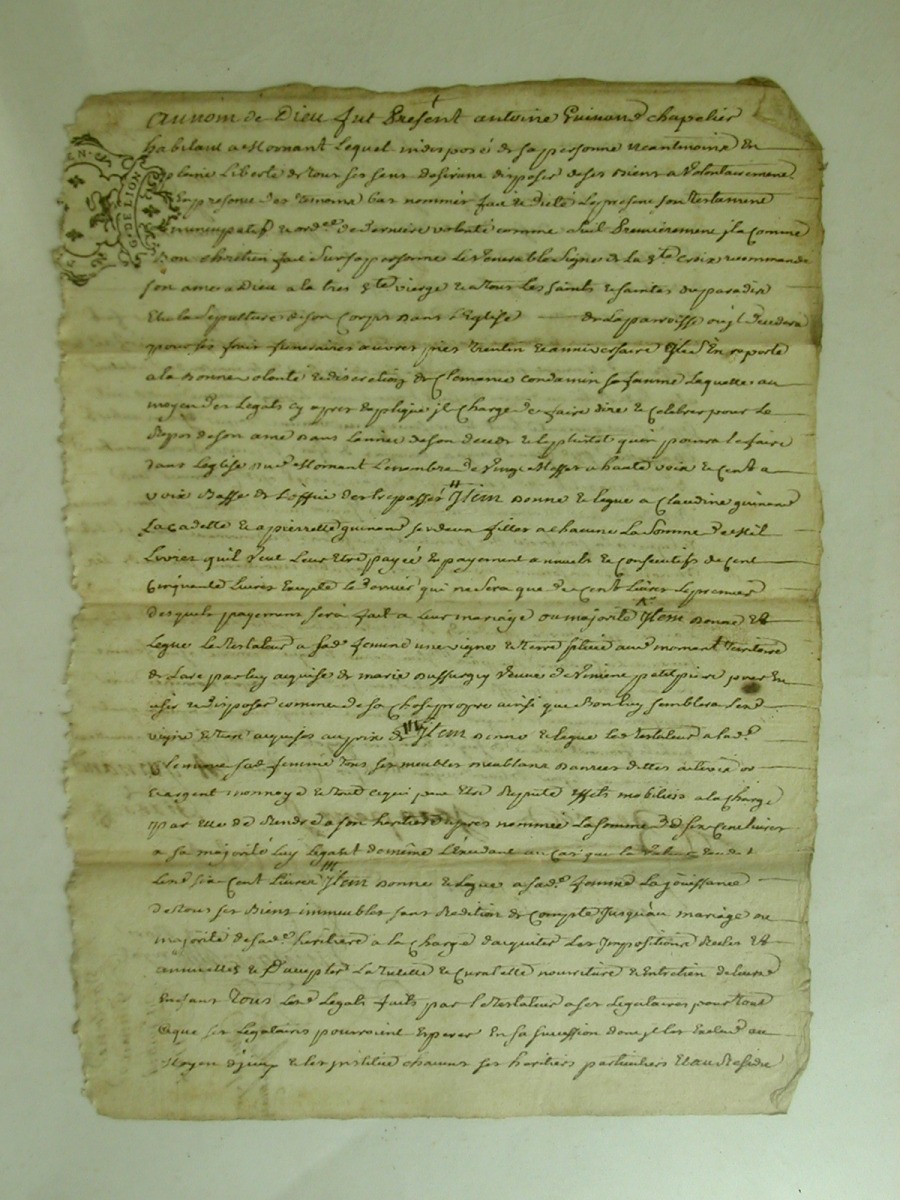 GEN. DE LION
Au nom de Dieu fut Présent antoine Guinand chapelier
habitant a Mornant Lequel indisposé de sa personne neantmoins En
plaine Liberté de tous ses sens desirant disposer de ses Biens a Volontairement
En presence des temoins bas nommés fait & dicté Le present son testament
nuncupatif & ord.re de derniere volonté comme suit Premierement jl a Comme
Bon chretien fait Sur sa personne Le Venerable Signe de La S.te Croix recommandé
son ame a Dieu a la tres S.te vierge & a tous Les saints & saintes du paradis
Elu la sepulture de son Corps dans L'Eglise de La parroisse ou jl decedera
pour ses frais funeraires œuvres pies trentin & anniversaire jl s'En raporte
a la Bonne volonté & discretion de Clemence Condamin sa femme Laquelle au
moyen des Legats cy apres Expliqués jl Charge de faire dire & Celebrer pour Le
Repos de son ame dans L'année de son decedz & Le plutot qu'on pourra Le faire
dans L'eglise dud. Mornant Le nombre de Vingt Messes a haute voix & Cent a
voix Basse de L'office des trepassés Jtem donne & legue a Claudine guinand
La cadette & a pierrette guinand ses deux filles a chacune La Somme de Mil
Livres qu'il Veut Leur Etre payée En payement annuels & Consecutifs de Cent
Cinquante Livres Excepté le dernier qui ne Sera que de Cent Livres Le premier
desquels payement sera fait a Leur mariage ou majorité Jtem donne Et
Legue Le testateur a sad.e femme une vigne & terre scituée aud. mornant territoire
de Lare par luy acquise de marie dussurgey Veuve de petit pierre pour En
user & disposer comme de sa Chose propre ainsi que Bon luy semblera Lesd.
vigne & terre acquises au prix de Jtem donne & legue Le testateur a lad.e
Clemence sad. femme tous ses meubles meublans danrées dettes actives or
& argent monnoyé & tout ce qui peut Etre Reputé Effets mobiliers a la Charge
Par Elle de Rendre a son heritiere apres nommée La somme de six Cent Livres
a sa majorité Luy Legant de même L'Excedant au Cas que la Valeur
Lesd. six Cent Livres Jtem donne & legue a sad.e femme La joüissance
de tous ses Biens immeubles sans Redition de Compte Jusqu'au mariage ou
majorité de sad.e heritiere a la Charge d'aquiter Les Jmpositions Reeles Et
annuelles & d'accepter La tutelle & Curatelle nourriture & Entretien de Leurs
Enfans tous Lesd. Legats faits par Le testateur a ses Legataires pour tout
ce que ses Legataires pourroient Esperer En sa succession dont jl les Exclud au
Moyen d'jceux & les jnstitue chacuns ses heritiers particuliers Et au Residu